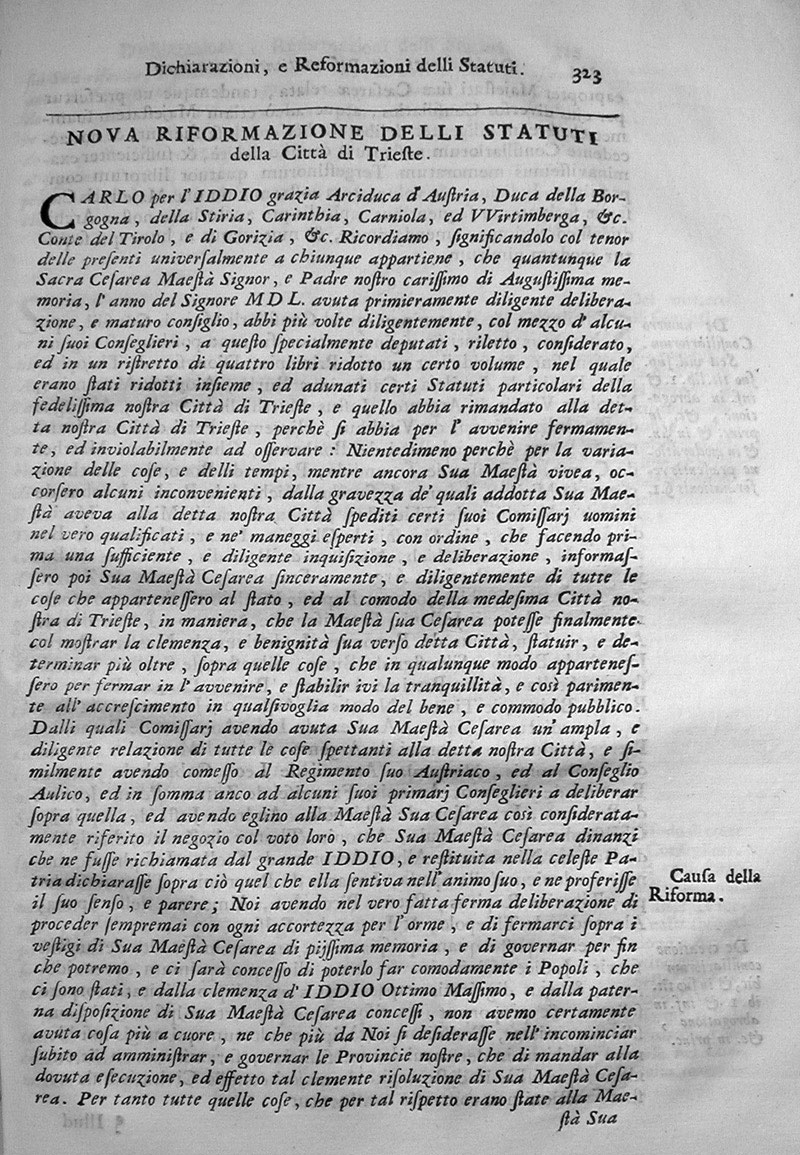 Dichiarazioni, e Reformazioni delli Statuti. 323
NOVA RIFORMAZIONE DELLI STATUTI
della Città di Trieſte.
CARLO per l'IDDIO grazia Arciduca d'Auſtria, Duca della Bor-
gogna, della Stiria, Carinthia, Carniola, ed VVirtimberga, &c.
Conte del Tirolo, e di Gorizia, &c. Ricordiamo, ſignificandolo col tenor
delle preſenti univerſalmente a chiunque appartiene, che quantunque la
Sacra Ceſarea Maeſtà Signor, e Padre noſtro cariſſimo di Auguſtiſſima me-
moria, l'anno del Signore MDL. avuta primieramente diligente delibera-
zione, e maturo conſiglio, abbi più volte diligentemente, col mezzo d'alcu-
ni ſuoi Conſeglieri, a queſto ſpecialmente deputati, riletto, conſiderato,
ed in un riſtretto di quattro libri ridotto un certo volume, nel quale
erano ſtati ridotti inſieme, ed adunati certi Statuti particolari della
fedeliſſima noſtra Città di Trieſte, e quello abbia rimandato alla det-
ta noſtra Città di Trieſte, perchè ſi abbia per l'avvenire fermamen-
te, ed inviolabilmente ad oſſervare: Nientedimeno perchè per la varia-
zione delle coſe, e delli tempi, mentre ancora Sua Maeſtà vivea, oc-
corſero alcuni inconvenienti, dalla gravezza de' quali addotta Sua Mae-
ſtà aveva alla detta noſtra Città ſpediti certi ſuoi Comiſſarj uomini
nel vero qualificati, e ne' maneggi eſperti, con ordine, che facendo pri-
ma una ſufficiente, e diligente inquiſizione, e deliberazione, informaſ-
ſero poi Sua Maeſtà Ceſarea ſinceramente, e diligentemente di tutte le
coſe che apparteneſſero al ſtato, ed al comodo della medeſima Città no-
ſtra di Trieſte, in maniera, che la Maeſtà ſua Ceſarea poteſſe finalmente
col moſtrar la clemenza, e benignità ſua verſo detta Città, ſtatuir, e de-
terminar più oltre, ſopra quelle coſe, che in qualunque modo apparteneſ-
ſero per fermar in l'avvenire, e ſtabilir ivi la tranquillità, e così parimen-
te all'accreſcimento in qualſivoglia modo del bene, e commodo pubblico.
Dalli quali Comiſſarj avendo avuta Sua Maeſtà Ceſarea un'ampla, e
diligente relazione di tutte le coſe ſpettanti alla detta noſtra Città, e ſi-
milmente avendo comeſſo al Regimento ſuo Auſtriaco, ed al Conſeglio
Aulico, ed in ſomma anco ad alcuni ſuoi primarj Conſeglieri a deliberar
ſopra quella, ed avendo eglino alla Maeſtà Sua Ceſarea così conſiderata-
mente riferito il negozio col voto lorò, che Sua Maeſtà Ceſarea dinanzi
che ne fuſſe richiamata dal grande IDDIO, e reſtituita nella celeſte Pa-
tria dichiaraſſe ſopra ciò quel che ella ſentiva nell'animo ſuo, e ne proferiſſe
il ſuo ſenſo, e parere; Noi avendo nel vero fatta ferma deliberazione di
proceder ſempremai con ogni accortezza per l'orme, e di fermarci ſopra i
veſtigi di Sua Maeſtà Ceſarea di piiſſima memoria, e di governar per fin
che potremo, e ci ſarà conceſſo di poterlo far comodamente i Popoli, che
ci ſono ſtati, e dalla clemenza d'IDDIO Ottimo Maſſimo, e dalla pater-
na diſpoſizione di Sua Maeſtà Ceſarea conceſſi, non avemo certamente
avuta coſa più a cuore, ne che più da Noi ſi deſideraſſe nell'incominciar
ſubito ad amminiſtrar, e governar le Provincie noſtre, che di mandar alla
dovuta eſecuzione, ed effetto tal clemente riſoluzione di Sua Maeſtà Ceſa-
rea. Per tanto tutte quelle coſe, che per tal riſpetto erano ſtate alla Mae-
ſtà Sua
Cauſa della
Riforma.